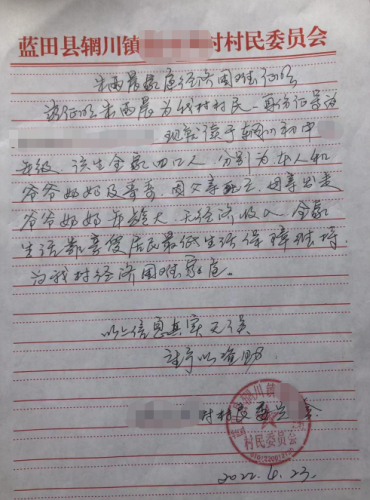 蓝田县辋川镇 村村民委员会
家庭经济困难证明
兹证明 为我村村民,身份证号码
现就读于辋川初中
年级。该生全家四口人,分别为本人和
爷爷奶奶及哥哥,因父亲死亡,母亲出走
爷爷奶奶年龄大,无经济收入,全家
生活靠享受居民最低生活保障维持,
为我村经济困难家庭。
以上信息真实无误
请予以资助
村村民委员会
辋川镇
村民委员会
2022.4.23.